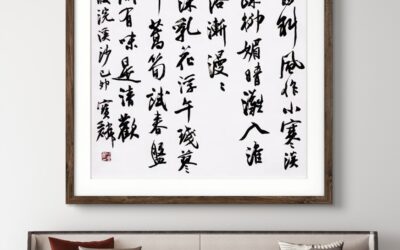 斜風作小寒淡
疏柳媚晴灘入淮
洛漸漫漫
沫乳花浮午琖蓼
蒿筍試春盤
間有味是清歡
浣溪沙己卯寶麟